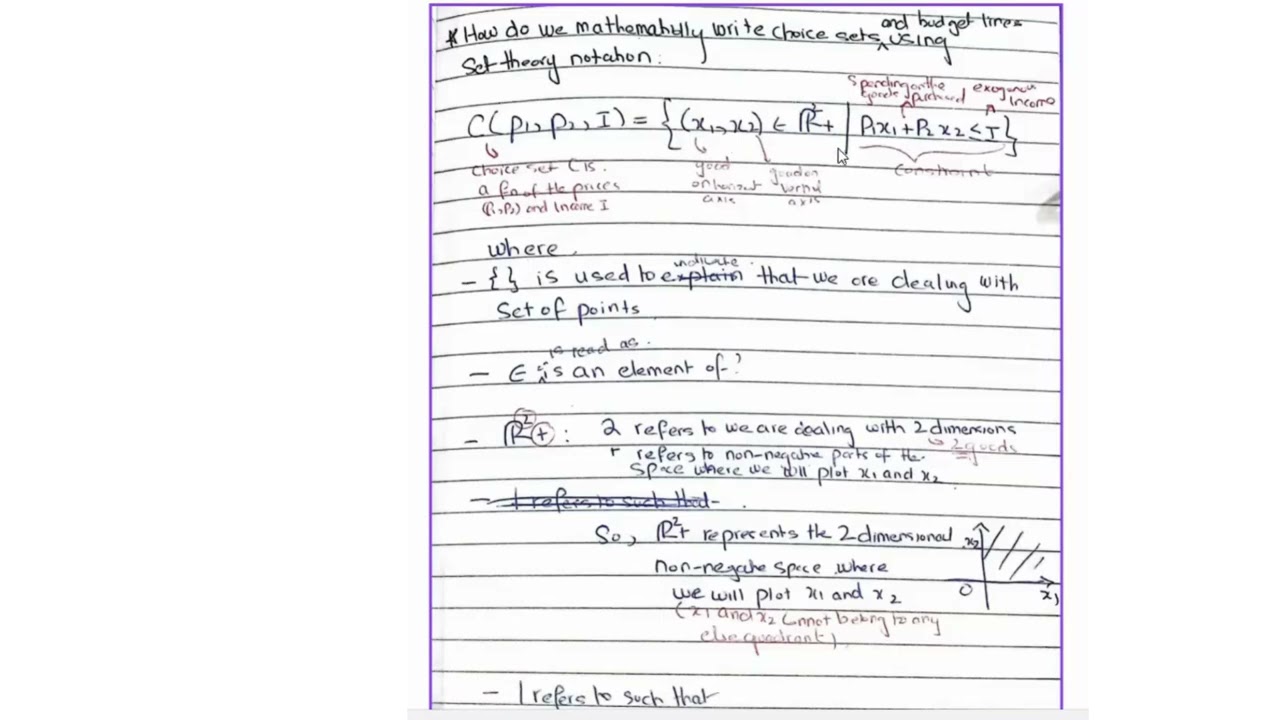 * How do we mathematically write choice sets and budget lines using
set theory notation.
Spending on the goods purchased
exogenous income
C(p₁, p₂, I) = {(x₁, x₂) ∈ ℝ²₊ | P₁x₁ + P₂x₂ ≤ I}
choice set C is
a fn of the prices
(P₁, P₂) and Income I
good
on horizont
axis
good on
axis
constraint
where
- { } is used to explain indicate that we are dealing with
set of points
is read as
- ∈ is an element of?
- ℝ²₊ : 2 refers to we are dealing with 2 dimensions
→ 2 goods
+ refers to non-negative parts of the
space where we will plot x₁ and x₂
- | refers to such that
So, ℝ²₊ represents the 2 dimensional
non-negative space where
we will plot x₁ and x₂
(x₁ and x₂ cannot belong to any
else quadrant)
x₂
0
x₁
- | refers to such that